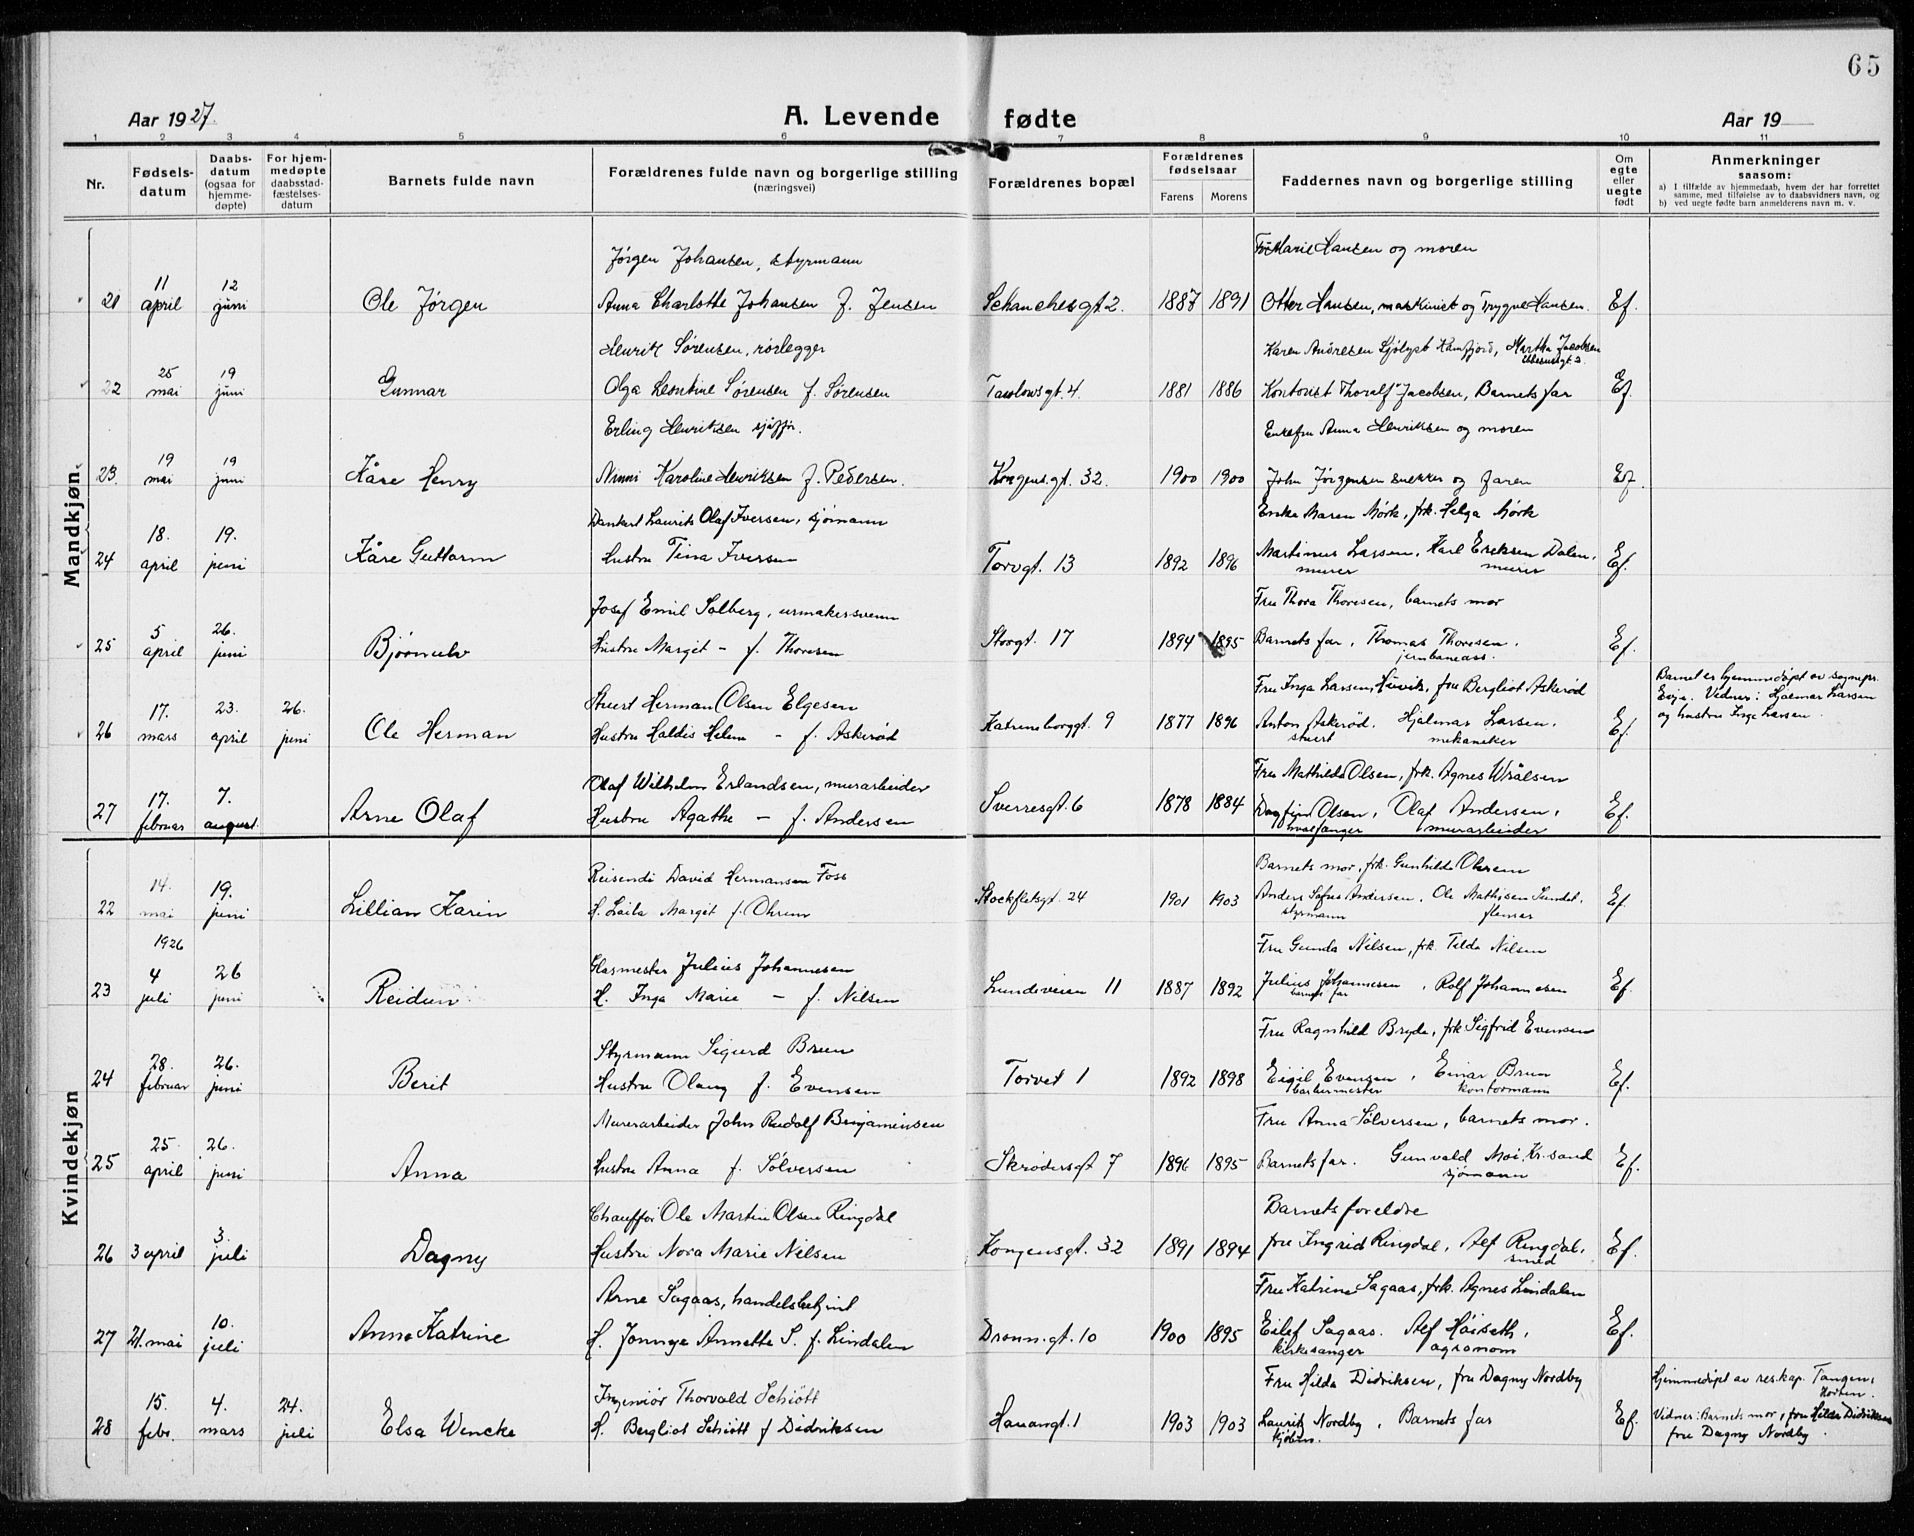 65
Aar 1927. A. Levende fødte Aar 19
1 2 3 4 5 6 7 8 9 10 11
Nr. Fødsels-datum Daabs-datum (ogsaa for hjemme-døpte) For hjem-medøpte daabsstad-fæstelses-datum Barnets fulde navn Forældrenes fulde navn og borgerlige stilling (næringsvei) Forældrenes bopæl Forældrenes fødselsaar Farens Morens Faddernes navn og borgerlige stilling Om egte eller uegte født Anmerkninger saasom:
a) I tilfælde av hjemmedaab, hvem der har forrettet samme, med tilføielse av to daabsvidners navn, og
b) ved uegte fødte barn anmelderens navn m. v.
Mandkjøn.
Jørgen Johansen, styrmann Marie Hansen og moren
21 11 april 12 juni Ole Jørgen Anna Charlotte Johansen f. Jensen Schanchesgt 2. 1887 1891 Otter Hansen, maskinist og Trygve Hansen. Ef.
Henrik Sørensen, rørlegger Karen Andresen Sjølyst, Martha Jacobsen
22 25 mai 19 juni Gunnar Olga Leontine Sørensen f. Sørensen 4. 1881 1886 Kontorist Thoralf Jacobsen, Barnets far Ef.
Erling Henriksen Enkefru Anna Henriksen og moren
23. 19 mai 19 juni Kåre Henry Ninni Karoline Henriksen f. Pedersen. Kongensgt. 32. 1900 1900 John Jørgensen snekker og faren Ef.
Dankert Laurits Olaf Iversen, sjømann Enke Maren Mørk, frk. Helga Mørk
24 18. april 19. juni Kåre Guttorm Hustru Tina Iversen Torvgt. 13 1892 1896 Martinus Larsen, murer Karl Eriksen Dalen, murer Ef.
Josef Emil Solberg, urmakersvenn Fru Thora Thoresen, barnets mor
25 5 april 26. juni Bjørnulv Hustru Margit - f. Thoresen Storgt. 17 1894 1895 Barnets far, Thomas Thoresen, jernbaneass. Ef.
Stuert Herman Olsen Elgesen Fru Inga Larsen, Huvik, fru Bergliot Askerød Barnet er hjemmedøpt av sognepr.
26 17. mars 23. april 26. juni Ole Herman Hustru Haldis Helene - f. Askerød Katrineborggt. 9 1877 1896 Anton Askerød, stuert Hjalmar Larsen, mekaniker Ef. Evje. Vidner: Hjalmar Larsen
og hustru Inga Larsen.
Olaf Wilhelm Erlandsen, murarbeider Fru Mathilde Olsen, frk. Agnes Wrålsen
27 17. februar 7. august. Arne Olaf Hustru Agathe - f. Andersen Sverresgt 6 1878 1884 Dagfinn Olsen, hvalfanger Olaf Andersen, murarbeider Ef.
Kvindekjøn
Reisende David Hermansen Foss Barnets mor, frk. Gunhilde Ohrem
22 14. mai 19. juni Lillian Karin H. Laila Margit f. Ohrem Stockfletsgt. 24 1901 1903 Anders Sofus Andersen, styrmann Ole Mathisen Sundet, flenser Ef.
1926 Glasmester Julius Johannesen Fru Gunda Nilsen, frk. Tilda Nilsen
23 4 juli 26 juni Reidun H. Inga Marie - f. Nilsen Lundeveien 11 1887 1892 Julius Johannesen barnets far, Rolf Johannesen Ef.
Styrmann Sigurd Brun Fru Ragnhild Bryde, frk Sigfrid Evensen
24 28. februar 26. juni Berit Hustru Olaug f. Evensen Torvet 1 1892 1898 Eigil Evensen, barbermester Einar Brun kontormann Ef.
Murerarbeider John Rudolf Benjaminsen Fru Anna Sølversen, barnets mor.
25 25 april 26. juni Anna Hustru Anna f. Sølversen Skrødersgt 7 1896 1895 Barnets far. Gunvald Moi, Kr.sand sjømann Ef.
Chauffør Ole Martin Olsen Ringdal Barnets foreldre
26 3 april 3. juli Dagny Hustru Nora Marie Nilsen Kongensgt. 32 1891 1894 fru Ingrid Ringdal, Alf Ringdal, smed Ef.
Arne Sagaas, handelsbetjent Fru Katrine Sagaas, frk. Agnes Lindalen
27 21. mai 10. juli Anne Katrine H. Annette S. f. Lindalen Dronn.gt. 10 1900 1895 Eilef Sagaas, kirkesanger Alf Høiseth, agronom Ef.
Ingeniør Thorvald Schiøtt Fru Hilda Didriksen, fru Dagny Nordby Hjemmedøpt av res. kap. Tangen, Horten.
28 15. febr. 4. mars 24. juli Elsa Wencke H. Bergliot Schiøtt f Didriksen Havangt. 1 1903 1903 Laurits Nordby, kjøbm. Barnets far Ef. Vidner: Barnets mor, fru Hilda Didriksen
fru Dagny Nordby.